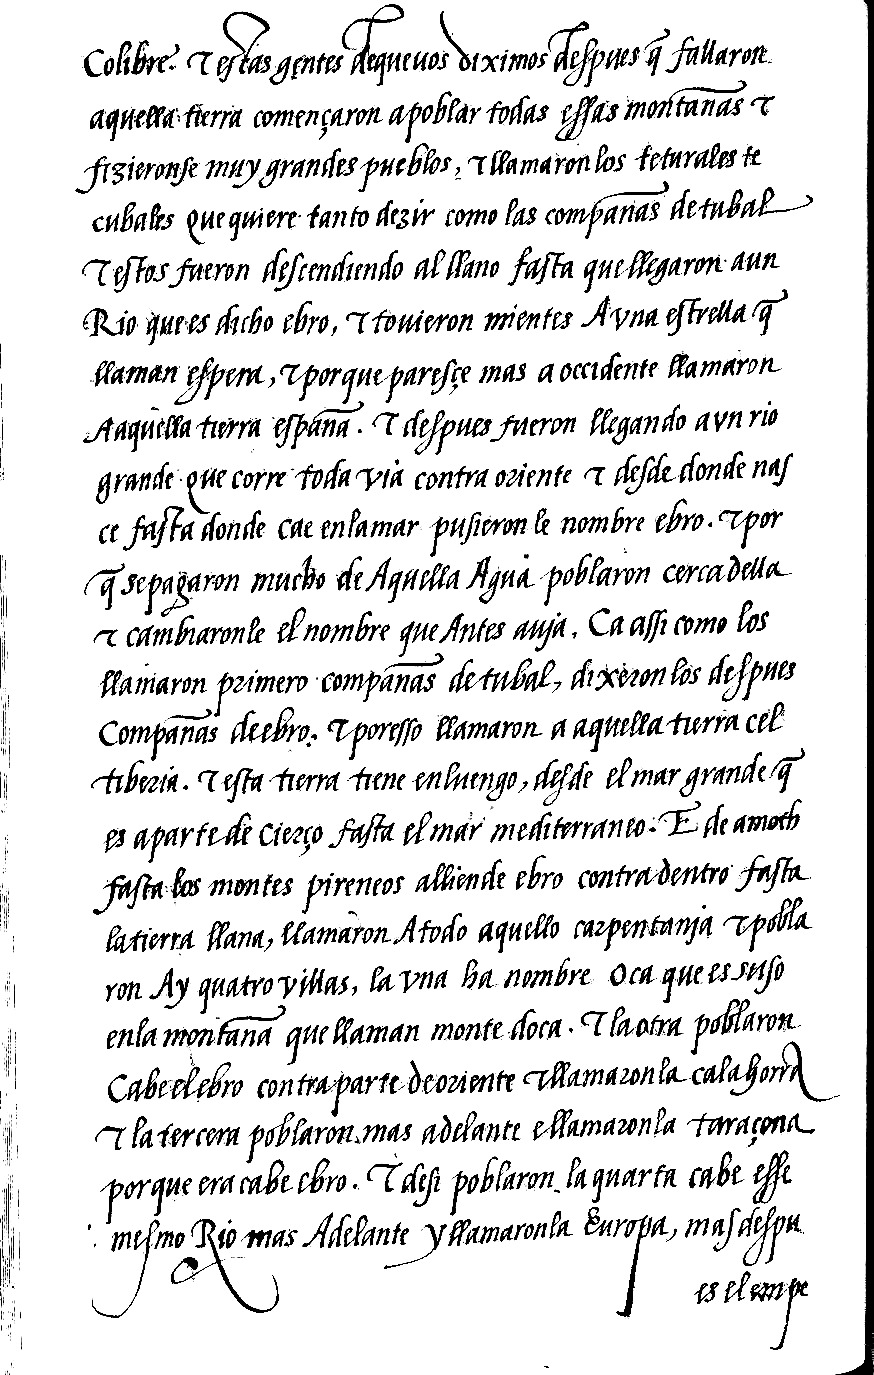 Colibre. τ estas gentes de que uos diximos despues q̃ fallaron
aquella tierra començaron a poblar todas essas montañas τ
fizieronse muy grandes pueblos, τ llamaron los teturales te
cubales que quiere tanto dezir como las compañas de tubal
τ estos fueron descendiendo al llano fasta que llegaron a un
Rio que es dicho ebro, τ touieron mientes A vna estrella q̃
llaman espera, τ porque paresçe mas a occidente llamaron
A aquella tierra españa. τ despues fueron llegando a vn rio
grande que corre toda via contra oriente τ desde donde nas
ce fasta donde cae en la mar pusieron le nombre ebro. τ por
q̃ se pagaron mucho de Aquella Agua poblaron cerca della
τ cambiaronle el nombre que Antes auja. Ca assi como los
llamaron primero compañas de tubal, dixeron los despues
Compañas de ebro. τ por esso llamaron a aquella tierra cel
tiberia. τ esta tierra tiene en luengo, desde el mar grande q̃
es a parte de cierço fasta el mar mediterraneo. E de amoth
fasta los montes pireneos alliende ebro contra dentro fasta
la tierra llana, llamaron A todo aquello carpentanja τ pobla
ron Ay quatro villas, la vna ha nombre Oca que es suso
en la montaña que llaman monte doca. τ la otra poblaron
Cabe el ebro contra parte de oriente τ llamaron la calahorra
τ la tercera poblaron mas adelante e llamaron la taraçona
porque era cabe ebro. τ desi poblaron la quarta cabe esse
mesmo Rio mas Adelante y llamaron la Europa, mas despu
es el empe